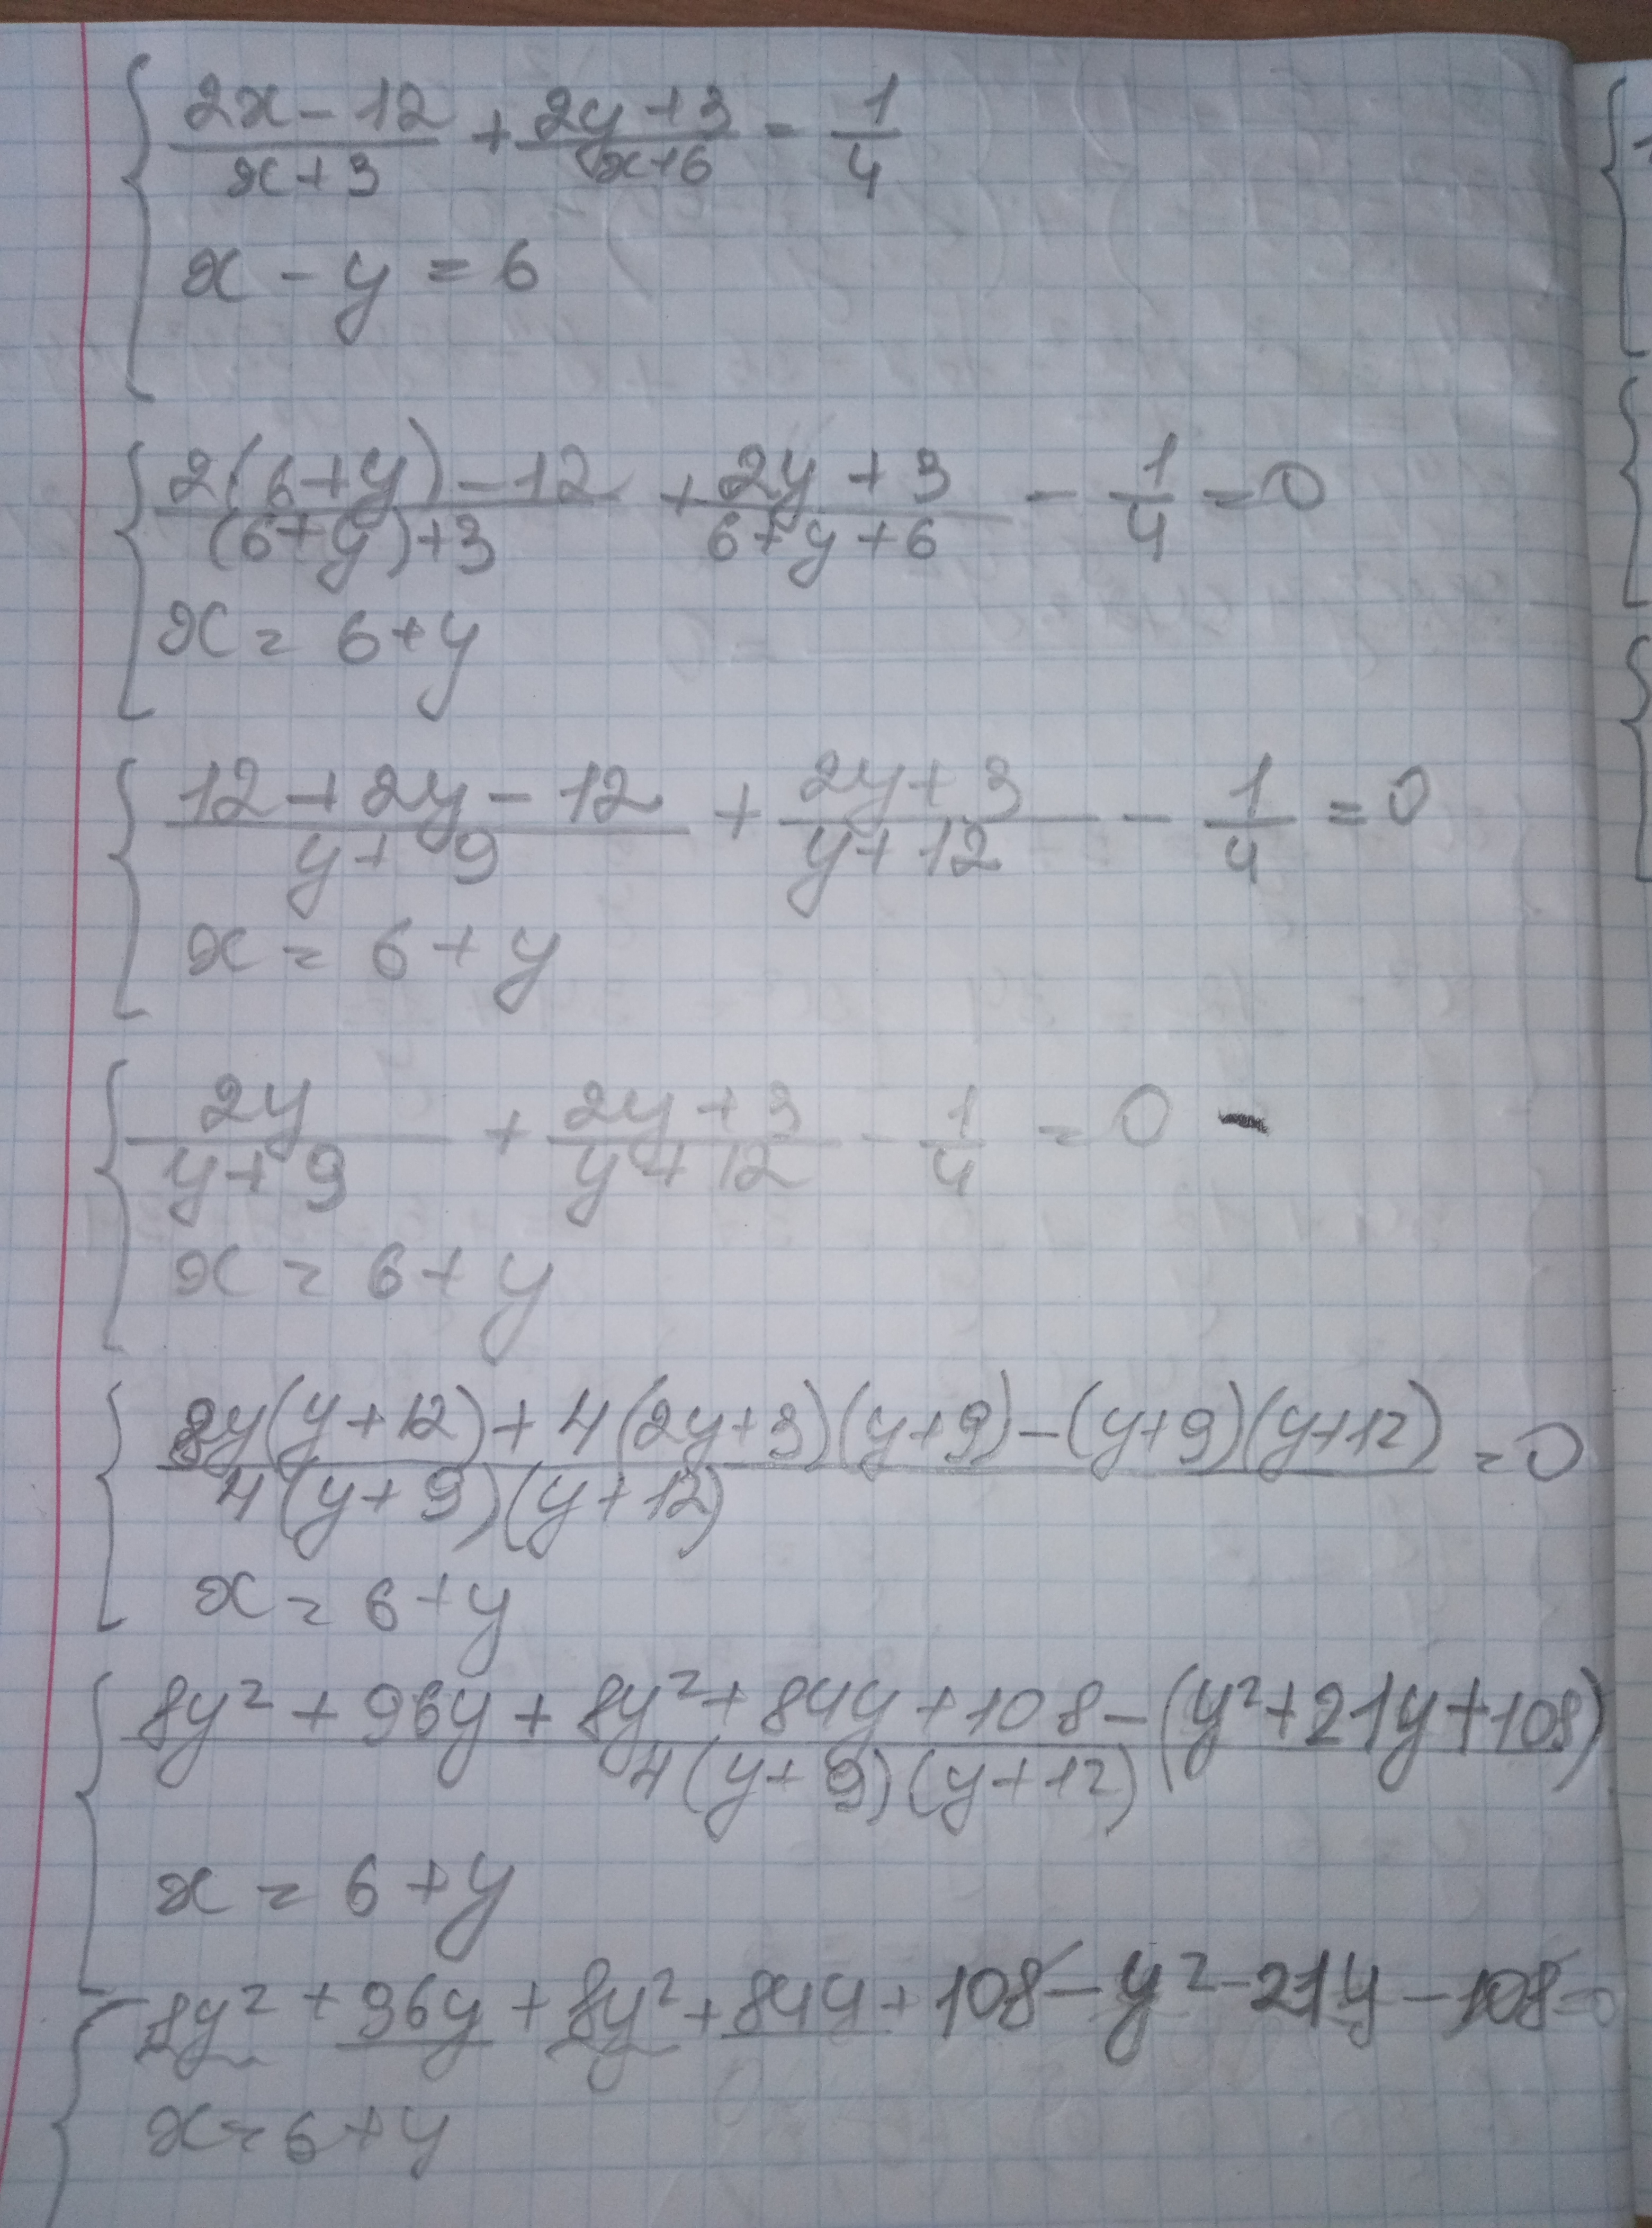 (2x-12)/(x+3) + (2y+3)/(x+6) = 1/4
x - y = 6
(2(6+y)-12)/((6+y)+3) + (2y+3)/(6+y+6) - 1/4 = 0
x = 6+y
(12+2y-12)/(y+9) + (2y+3)/(y+12) - 1/4 = 0
x = 6+y
2y/(y+9) + (2y+3)/(y+12) - 1/4 = 0 -
x = 6+y
(8y(y+12)+4(2y+3)(y+9)-(y+9)(y+12))/(4(y+9)(y+12)) = 0
x = 6+y
(8y²+96y+8y²+84y+108-(y²+21y+108))/(4(y+9)(y+12))
x = 6+y
8y²+96y+8y²+84y+108-y²-21y-108=0
x=6+y